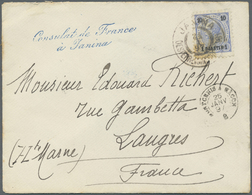 Consulat de France
à Janina
10 10
Monsieur Edouard Richert
rue Gambetta
Langres
(Hte Marne)
France
25
JANV